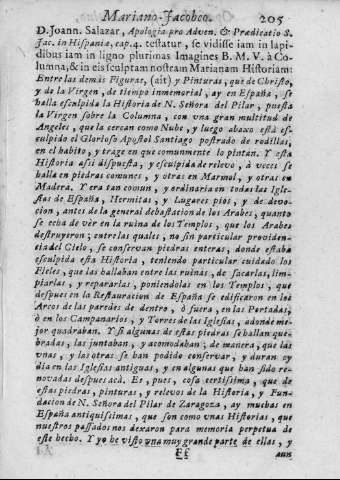 Mariano-Jacobeo. 205
D. Joann. Salazar, Apologia pro Adven. & Prædicatio S.
Jac. in Hispania, cap. 4. testatur, se vidisse iam in lapi-
dibus iam in ligno plurimas Imagines B. M. V. à Co-
lumna, & in eis sculptam nostram Marianam Historiam:
Entre las demás Figuras, (ait) y Pinturas, què de Christo,
y de la Virgen, de tiempo inmemorial, ay en España, se
halla esculpida la Historia de N. Señora del Pilar, puesta
la Virgen sobre la Columna, con vna gran multitud de
Angeles, que la cercan como Nube, y luego abaxo està es-
culpido el Glorioso Apostol Santiago postrado de rodillas,
en el habito, y trage en que comunmente lo pintan. Y esta
Historia assi dispuesta, y esculpida de relevo, à veces se
halla en piedras comunes, y otras en Marmol, y otras en
Madera. Y era tan comun, y ordinaria en todas las Igle-
sias de España, Hermitas, y Lugares pios, y de devo-
cion, antes de la general debastacion de los Arabes, quanto
se echa de vèr en la ruina de los Templos, que los Arabes
destruyeron; entre las quales, no sin particular providen-
cia del Cielo, se conservan piedras enteras, donde estaba
esculpida esta Historia, teniendo particular cuidado los
Fieles, que las hallaban entre las ruinas, de sacarlas, lim-
piarlas, y repararlas, poniendolas en los Templos, que
despues en la Restauracion de España se edificaron en los
Arcos de las paredes de dentro, ò fuera, en las Portadas,
ò en los Campanarios, y Torres de las Iglesias, adonde me-
jor quadraban. Y si algunas de estas piedras se hallan que-
bradas, las juntaban, y acomodaban; de manera, que las
vnas, y las otras se han podido conservar, y duran oy
dia en las Iglesias antiguas, y en algunas que han sido re-
novadas despues acà. Es, pues, cosa certissima, que de
estas piedras, pinturas, y relevos de la Historia, y Fun-
dacion de N. Señora del Pilar de Zaragoza, ay muchas en
España antiquissimas, que son como vnas Historias, que
nuestros passados nos dexaron para memoria perpetua de
este hecho. Y yo he visto una muy grande parte de ellas, y
Ff aun